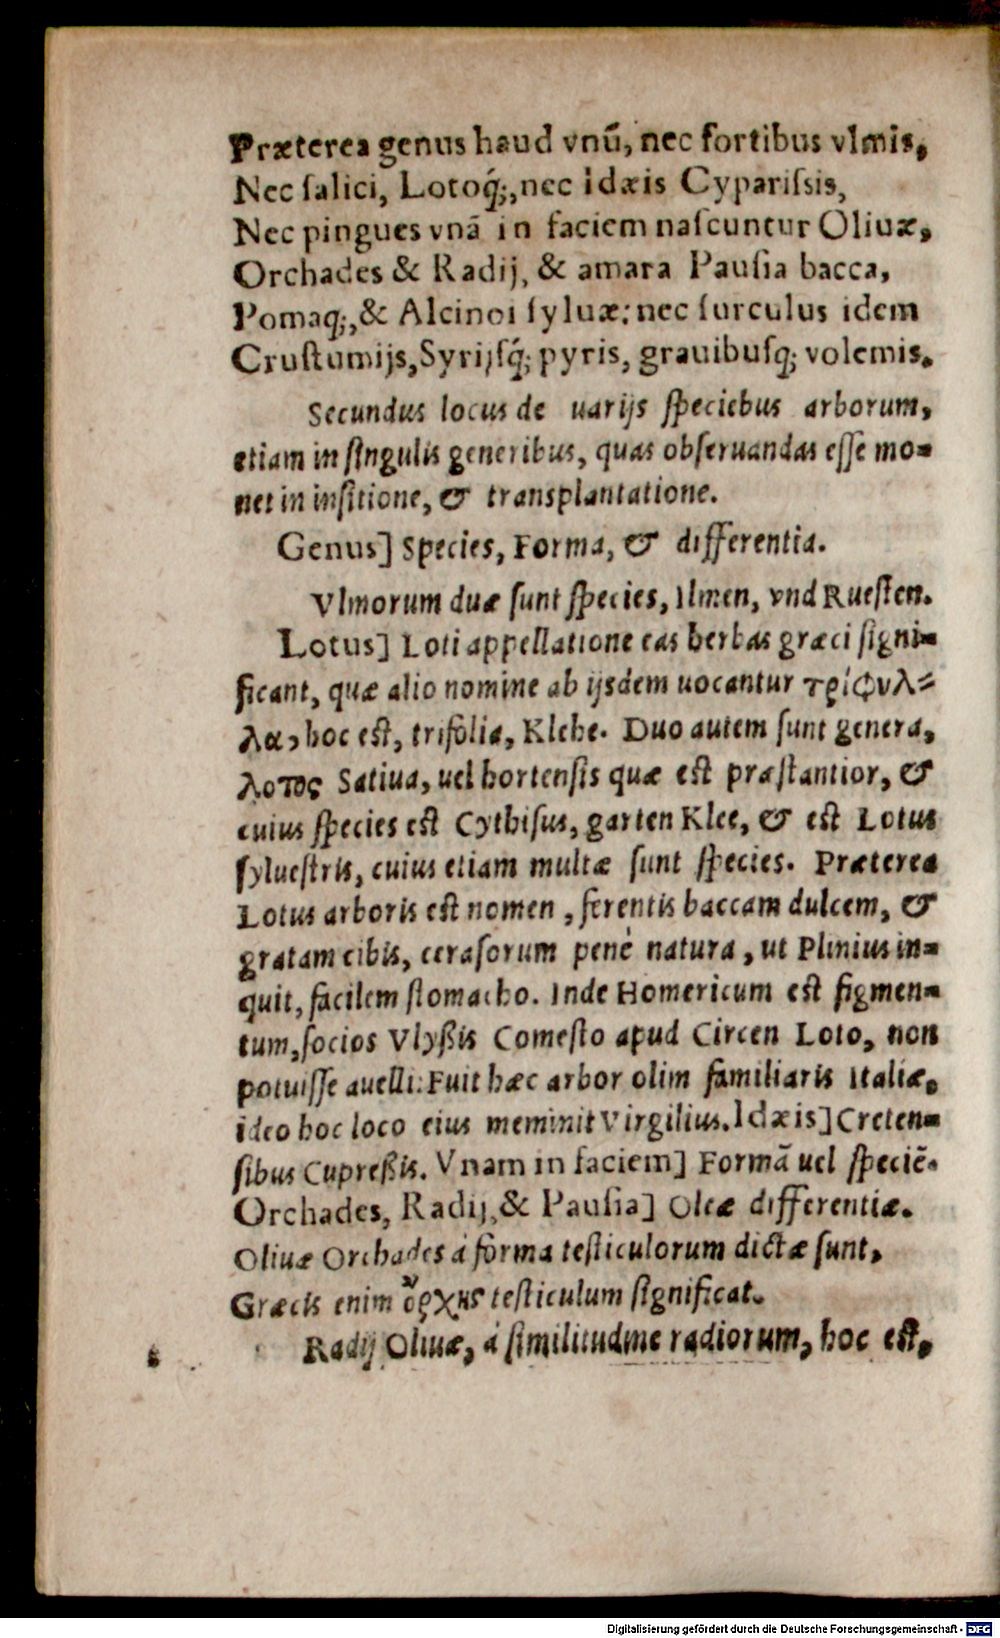 Præterea genus haud vnũ, nec fortibus vlmis,
Nec ſalici, Lotoq́;, nec idæis Cypariſsis,
Nec pingues vnã in faciem naſcuntur Oliuæ,
Orchades & Radij, & amara Pauſia bacca,
Pomaq;, & Alcinoi ſyluæ: nec ſurculus idem
Cruſtumijs, Syrijſq́; pyris, grauibuſq; volemis.
Secundus locus de uarijs ſpeciebus arborum,
etiam in ſingulis generibus, quas obſeruandas eſſe mo-
net in inſitione, & transplantatione.
Genus] Species, Forma, & differentia.
Vlmorum duæ ſunt ſpecies, Ilmen, vnd Rueſten.
Lotus] Loti appellatione eas herbas græci ſigni-
ficant, quæ alio nomine ab ijsdem uocantur τρίφυλ-
λα, hoc eſt, trifolia, Klehe. Duo autem ſunt genera,
λοτος Satiua, uel hortenſis quæ eſt præſtantior, &
cuius ſpecies eſt Cythiſus, garten Klee, & eſt Lotus
ſylueſtris, cuius etiam multæ ſunt ſpecies. Præterea
Lotus arboris eſt nomen, ferentis baccam dulcem, &
gratam cibis, ceraſorum penè natura, ut Plinius in-
quit, facilem ſtomacho. Inde Homericum eſt figmen-
tum, ſocios Vlyßis Comeſto apud Circen Loto, non
potuiſſe auelli: Fuit hæc arbor olim familiaris Italiæ,
ideo hoc loco eius meminit Virgilius. Idæis] Creten-
ſibus Cupreßis. Vnam in faciem] Formã uel ſpeciẽ.
Orchades, Radij, & Pauſia] Oleæ differentiæ.
Oliuæ Orchades á forma teſticulorum dictæ ſunt,
Græcis enim ὄρχις teſticulum ſignificat.
Radij Oliuæ, á ſimilitudine radiorum, hoc eſt,
Digitalisierung gefördert durch die Deutsche Forschungsgemeinschaft - DFG